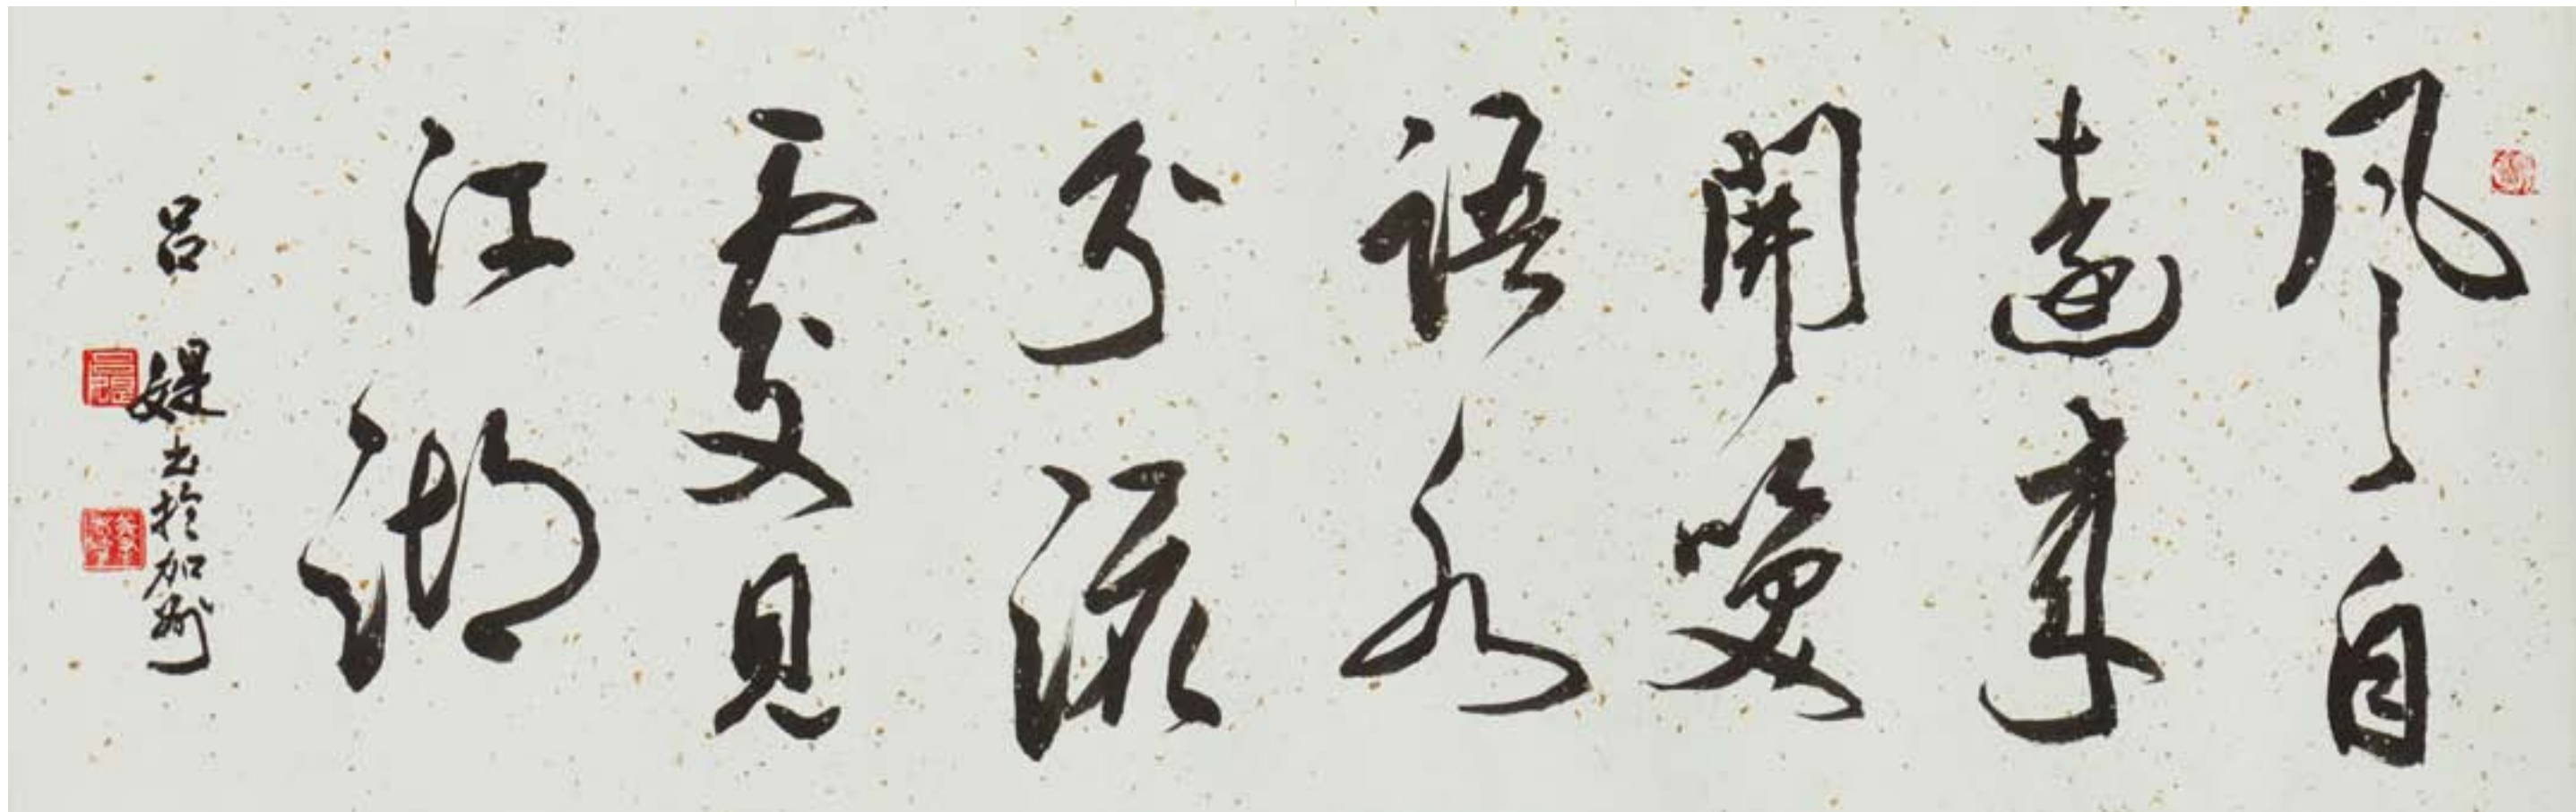 风自
遠来
聞笑
語水
分流
處見
江湖
吕媞书於加州